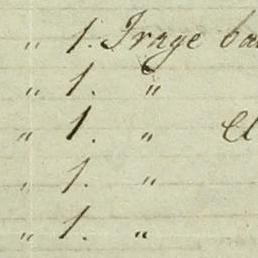 " 1. Frage ba
" 1. "
" 1. " Cl
" 1. "
" 1. "